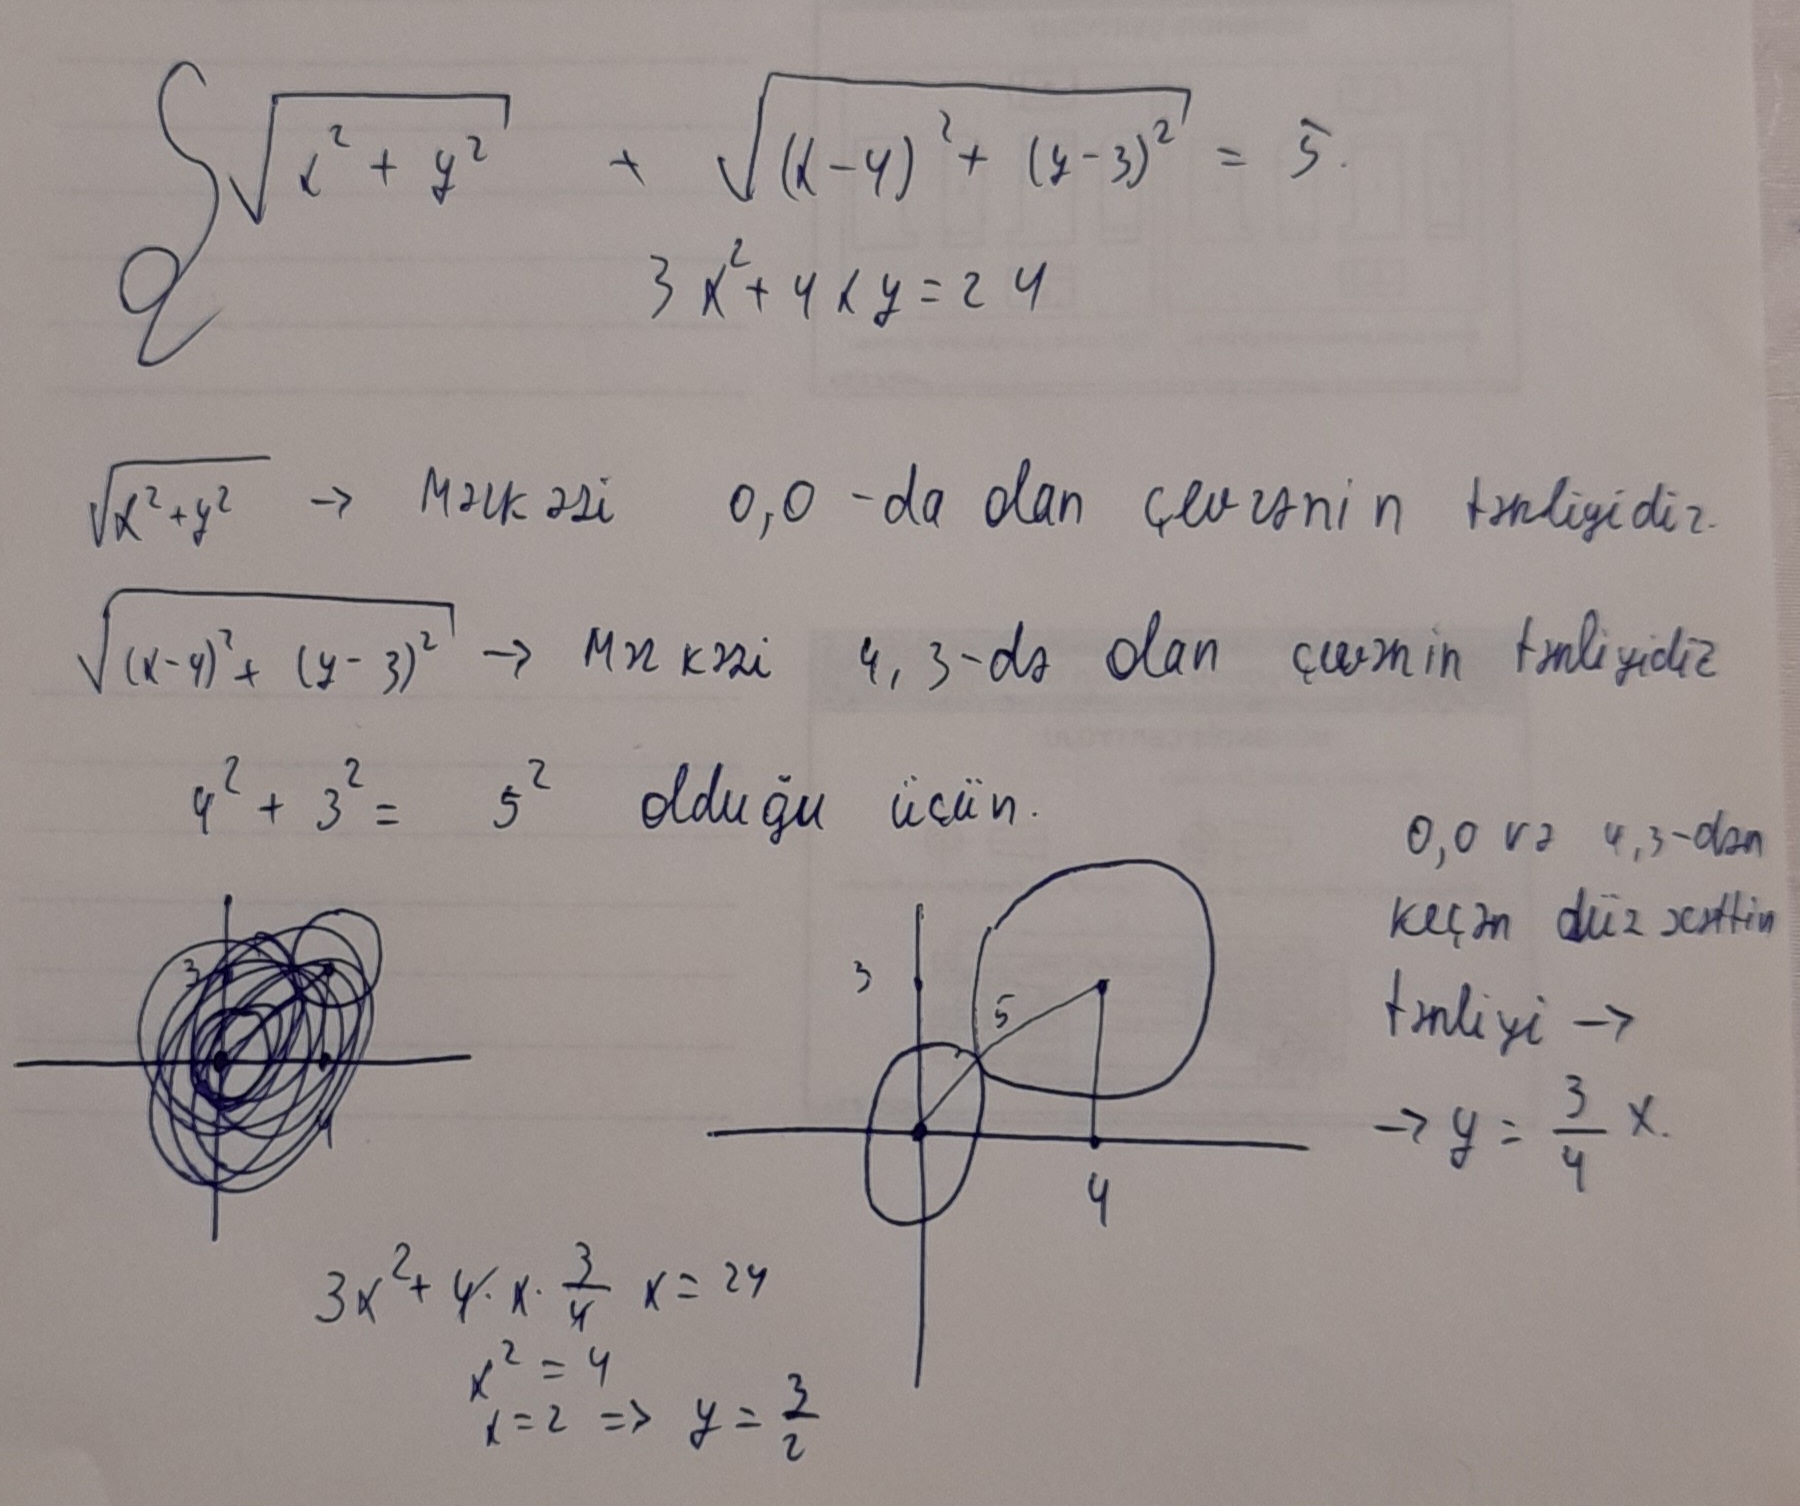 √(x² + y²) + √((x-4)² + (y-3)²) = 5.
3x² + 4xy = 24
√(x²+y²) → Mərkəzi 0,0-da olan çevrənin tənliyidir.
√((x-4)² + (y-3)²) → Mərkəzi 4,3-də olan çevrənin tənliyidir
4² + 3² = 5² olduğu üçün.
3
4
3
5
4
0,0 və 4,3-dən
keçən düz xəttin
tənliyi →
→ y = 3/4 x.
3x² + 4·x·3/4 x = 24
x² = 4
x = 2 => y = 3/2